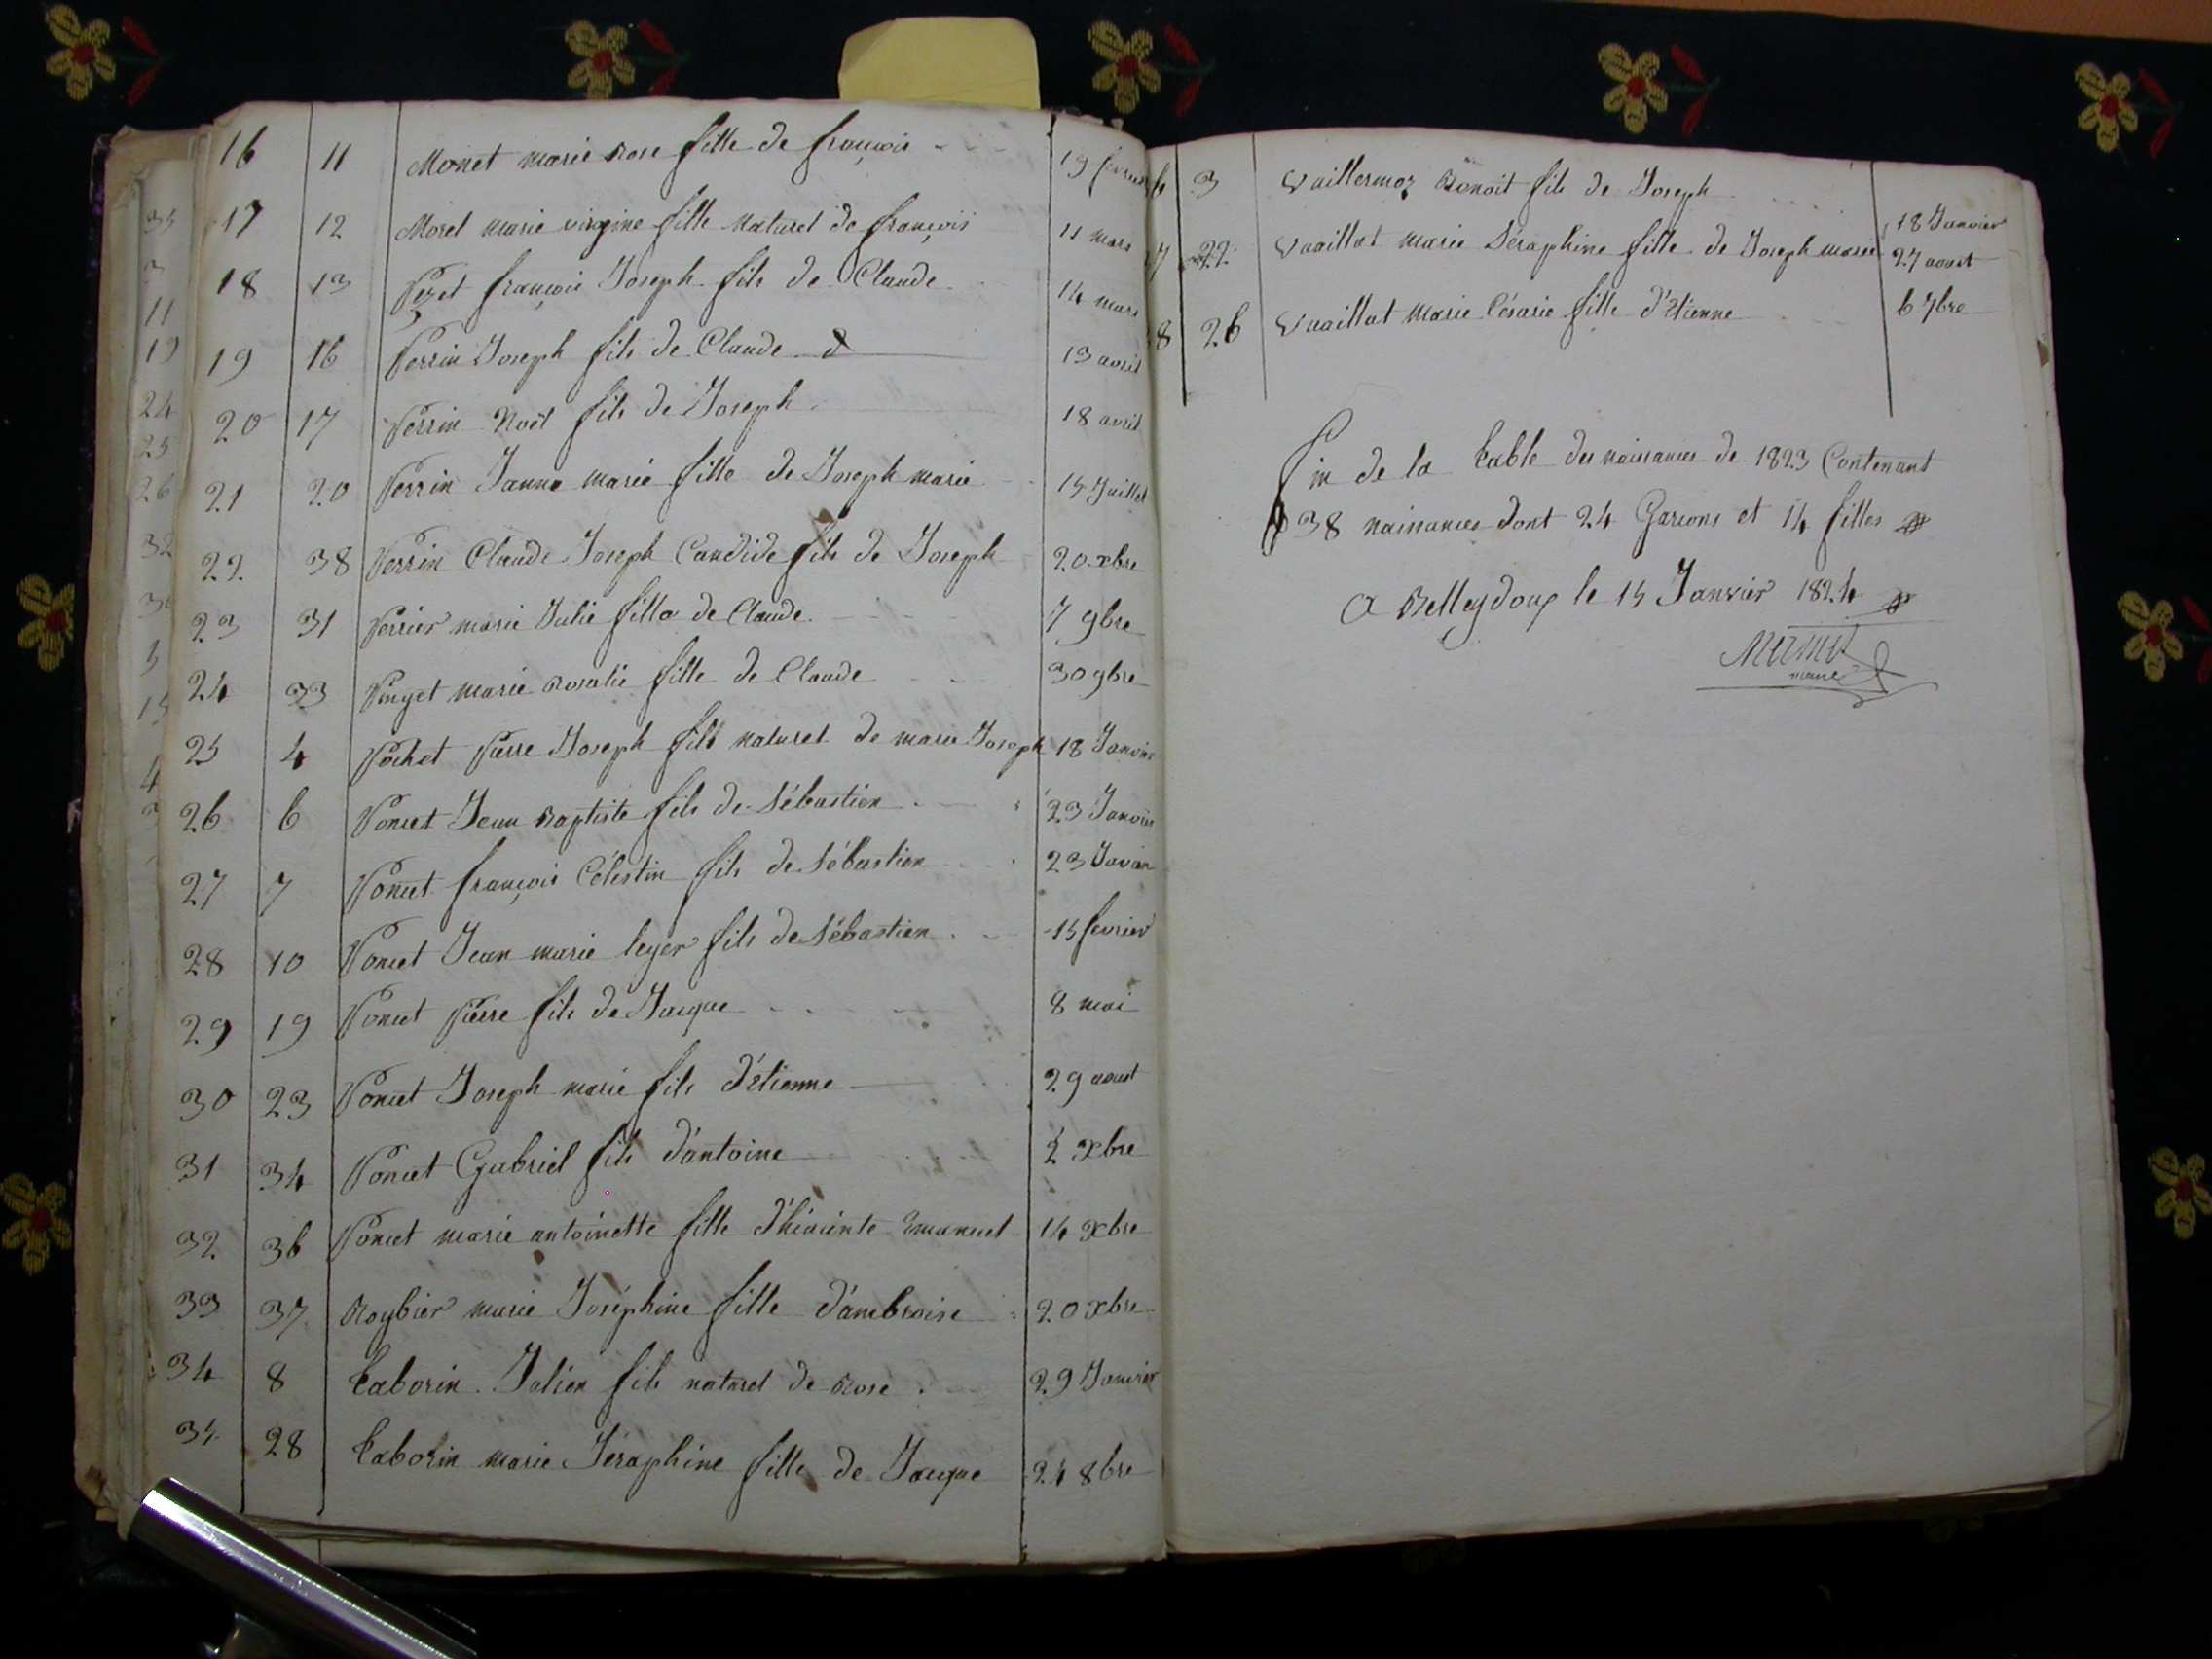 16 11 Monet marie Rose fille de françois 19 fevrier
17 12 Morel marie virgine fille Naturel de françois 11 mars
18 13 Pezet françois Joseph fils de Claude 14 mars
19 16 Perrin Joseph fils de Claude 13 avril
20 17 Perrin Noël fils de Joseph 18 avril
21 20 Perrin Janne marie fille de Joseph marie 15 Juillet
22 38 Perrin Claude Joseph Candide fils de Joseph 20 xbre
23 31 Perrier marie Julie fille de Claude 7 9bre
24 33 Pinget marie Rosalie fille de Claude 30 9bre
25 4 Pochet Pierre Joseph fils naturel de marie Joseph 18 Janvier
26 6 Poncet Jean Baptiste fils de Sébastien 23 Janvier
27 7 Poncet françois Célestin fils de Sébastien 23 Janvier
28 10 Poncet Jean marie leger fils de Sébastien 15 fevrier
29 19 Poncet Pierre fils de Jacque 8 mai
30 23 Poncet Joseph marie fils d'étienne 29 aoust
31 34 Poncet Gabriel fils d'antoine 2 xbre
32 36 Poncet marie antoinette fille d'hiacinte Emanuel 14 xbre
33 37 Roybier marie Joséphine fille d'ambroise 20 xbre
34 8 Taborin Julien fils naturel de Rose 29 Janvier
35 28 Taborin marie Séraphine fille de Jacque 24 8bre
6 3 Vuillermoz Benoit fils de Joseph 18 Janvier
7 22 Vuaillat marie Séraphine fille de Joseph marie 27 aoust
8 26 Vuaillat Marie Césarie fille d'étienne 6 7bre
Fin de la table des naissances de 1823 Contenant
38 naissances dont 24 Garçons et 14 filles
A Belleydoux le 15 Janvier 1824
Mermet
maire